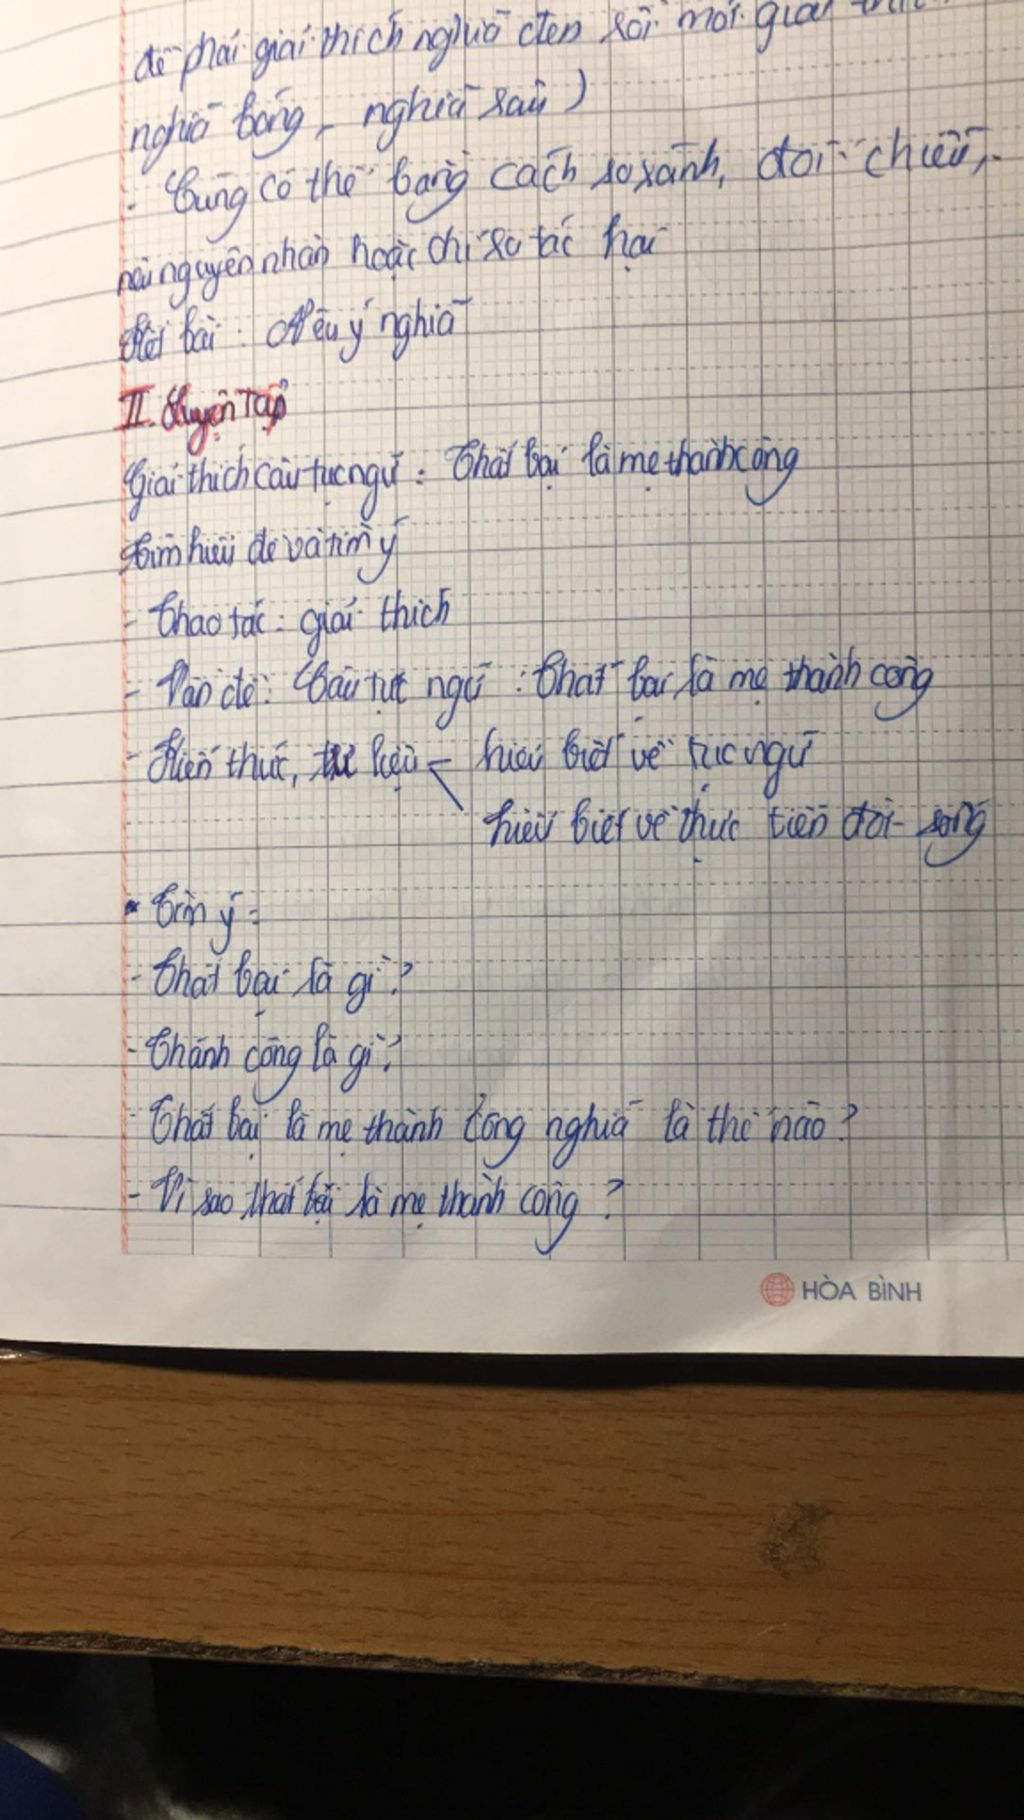 đề phải giải thích nghĩa đen rồi mới giải thích
nghĩa bóng, nghĩa sâu)
- Cũng có thể bằng cách so sánh, đối chiếu,
nêu nguyên nhân hoặc chỉ sự tác hại
Kết bài: Nêu ý nghĩa
II. Luyện Tập
Giải thích câu tục ngữ: Thất bại là mẹ thành công
Tìm hiểu đề và tìm ý
- Thao tác: giải thích
- Vấn đề: Câu tục ngữ: Thất bại là mẹ thành công
- Kiến thức, tư liệu - hiểu biết về tục ngữ
hiểu biết về thực tiễn đời sống
* Tìm ý:
- Thất bại là gì?
- Thành công là gì?
- Thất bại là mẹ thành công nghĩa là thế nào?
- Vì sao thất bại là mẹ thành công?
HÒA BÌNH